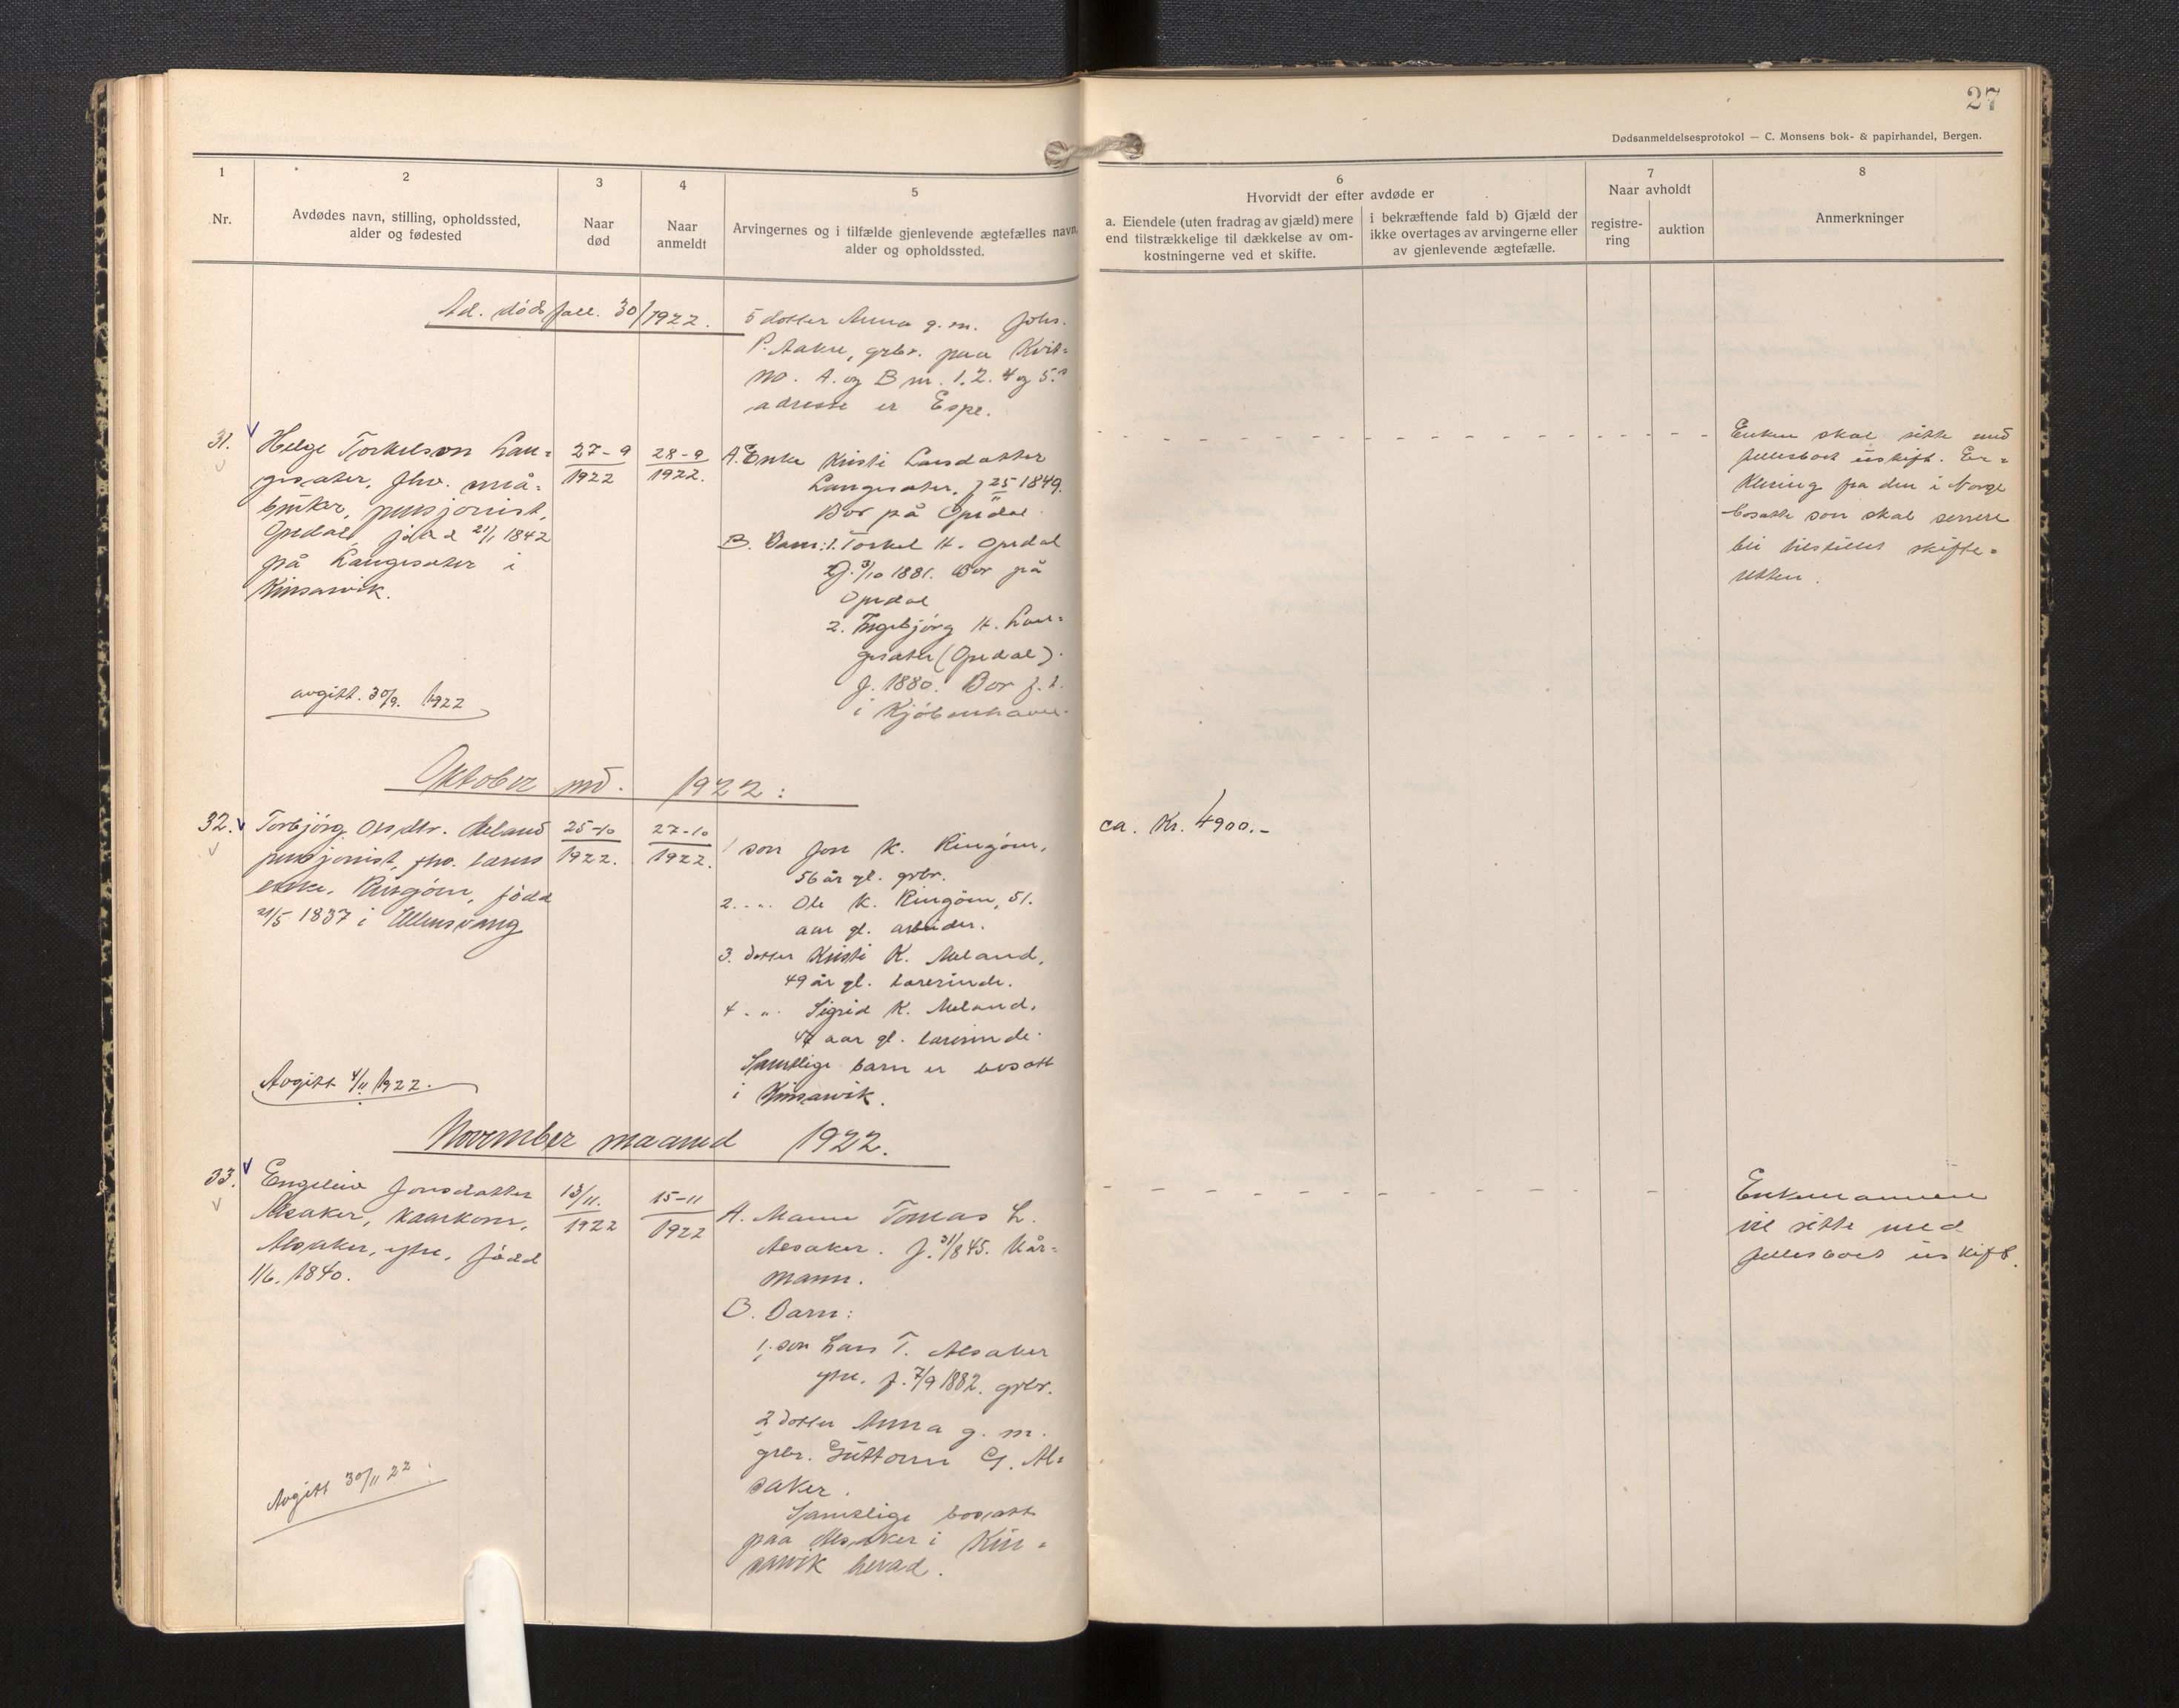 27
Dødsanmeldelsesprotokol — C. Monsens bok- & papirhandel, Bergen.
1
Nr.
2
Avdødes navn, stilling, opholdssted,
alder og fødested
3
Naar
død
4
Naar
anmeldt
5
Arvingernes og i tilfælde gjenlevende ægtefælles navn,
alder og opholdssted.
6
Hvorvidt der efter avdøde er
a. Eiendele (uten fradrag av gjæld) mere
end tilstrækkelige til dækkelse av om-
kostningerne ved et skifte.
i bekræftende fald b) Gjæld der
ikke overtages av arvingerne eller
av gjenlevende ægtefælle.
7
Naar avholdt
registre-
ring
auktion
8
Anmerkninger
Ad. dødsfall. 30/1922.
5 dotter Anna g. m. Johs.
P. Aakre, grbr. paa Kvit-
no. A. og B nr. 1. 2. 4 og 5.s
adresse er Espe.
31.
Helge Torkelson Lan-
gesæter, fhv.
bruker, pensjonist,
Opedal, född 21/1 1842
på Langesæter i
Kinsarvik.
27-9
1922
28-9
1922.
A. Enke Kristi Larsdatter
Langesæter, f 25 1849.
Bor på Opedal.
B. Barn: 1. Torkel H. Opedal
f. 3/10 1881. Bor på
Opedal
2. Ingebjörg H. Lan-
gesæter (Opedal).
f. 1880. Bor f. t.
i Kjöbenhavn.
Enken skal sitte med
fellesboet uskift. Er-
klering fra den i Norge
bosatte son skal senere
bli tilstillet skifte-
retten.
avgitt. 30/9. 1922
Oktober md. 1922:
32.
Torbjörg Olsdtr. Meland
pensjonist, fhv. lærer
enke, Ringöm, född
21/5 1837 i Ullensvang
25-10
1922.
27-10
1922.
1 son Jon K. Ringöm,
56 år gl. grbr.
2. .. Ole K. Ringöm, 51.
aar gl. arbeider.
3. dotter Kristi K. Meland,
49 år gl. lærerinde.
4. .. Sigrid K. Meland,
aar gl. lærerinde.
Samtlige barn er bosatt
i Kinsarvik.
ca. Kr. 4900.-
Avgitt 4/11 1922.
November maaned 1922.
33.
Engeleiv Jonsdatter
Alsaker, kaarkone,
Alsaker, ytre, född
1/6. 1840.
13/11.
1922
15-11
1922
A. Mann Tomas L.
Alsaker. f. 31/8 45. Kår-
mann.
B. Barn:
1. son Lars T. Alsaker
ytre. f. 7/9 1882. grbr.
2 dotter Anna g. m.
grbr. Guttorm G. Al-
saker.
Samtlige bosatt
paa Alsaker i Kin-
sarvik herad.
Enkemannen
vil sitte med
fellesboet uskift.
Avgitt 30/11 22.